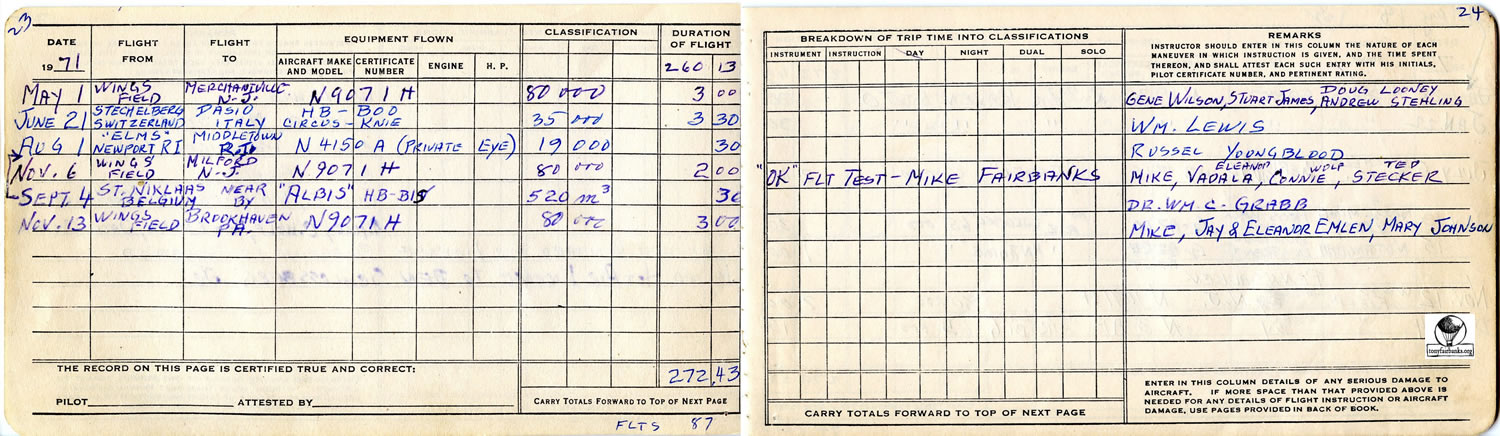 23
DATE
1971
FLIGHT FROM
FLIGHT TO
EQUIPMENT FLOWN
AIRCRAFT MAKE AND MODEL
CERTIFICATE NUMBER
ENGINE
H. P.
CLASSIFICATION
DURATION OF FLIGHT
260 13
MAY 1 WINGS FIELD MERCHANTVILLE N.J. N9071H 80 000 3 00
JUNE 21 STECHELBERG SWITZERLAND DASIO ITALY HB-BOO CIRCUS-KNIE 35 000 3 30
AUG 1 "ELMS" NEWPORT RI MIDDLETOWN R.I. N4150A (PRIVATE EYE) 19 000 30
NOV. 6 WINGS FIELD MILFORD N.J. N9071H 80 000 2 00
SEPT. 4 ST. NIKLAAS BELGIUM NEAR BY "ALBIS" HB-BIS 520 m³ 30
NOV. 13 WINGS FIELD BROOKHAVEN PA. N9071H 80 000 3 00
THE RECORD ON THIS PAGE IS CERTIFIED TRUE AND CORRECT:
272,43
PILOT ATTESTED BY
CARRY TOTALS FORWARD TO TOP OF NEXT PAGE
FLTS 87
24
BREAKDOWN OF TRIP TIME INTO CLASSIFICATIONS
INSTRUMENT
INSTRUCTION
DAY
NIGHT
DUAL
SOLO
REMARKS
INSTRUCTOR SHOULD ENTER IN THIS COLUMN THE NATURE OF EACH
MANEUVER IN WHICH INSTRUCTION IS GIVEN, AND THE TIME SPENT
THEREON, AND SHALL ATTEST EACH SUCH ENTRY WITH HIS INITIALS,
PILOT CERTIFICATE NUMBER, AND PERTINENT RATING.
DOUG LOONEY
GENE WILSON, STUART JAMES, ANDREW STEHLING
WM. LEWIS
RUSSEL YOUNGBLOOD
"OK" FLT TEST - MIKE FAIRBANKS
ELEANOR WOLF TED
MIKE, VADALA, CONNIE, STECKER
DR. WM. C. GRABB
MIKE, JAY & ELEANOR EMLEN, MARY JOHNSON
tonyfairbanks.org
ENTER IN THIS COLUMN DETAILS OF ANY SERIOUS DAMAGE TO
AIRCRAFT. IF MORE SPACE THAN THAT PROVIDED ABOVE IS
NEEDED FOR ANY DETAILS OF FLIGHT INSTRUCTION OR AIRCRAFT
DAMAGE, USE PAGES PROVIDED IN BACK OF BOOK.
CARRY TOTALS FORWARD TO TOP OF NEXT PAGE